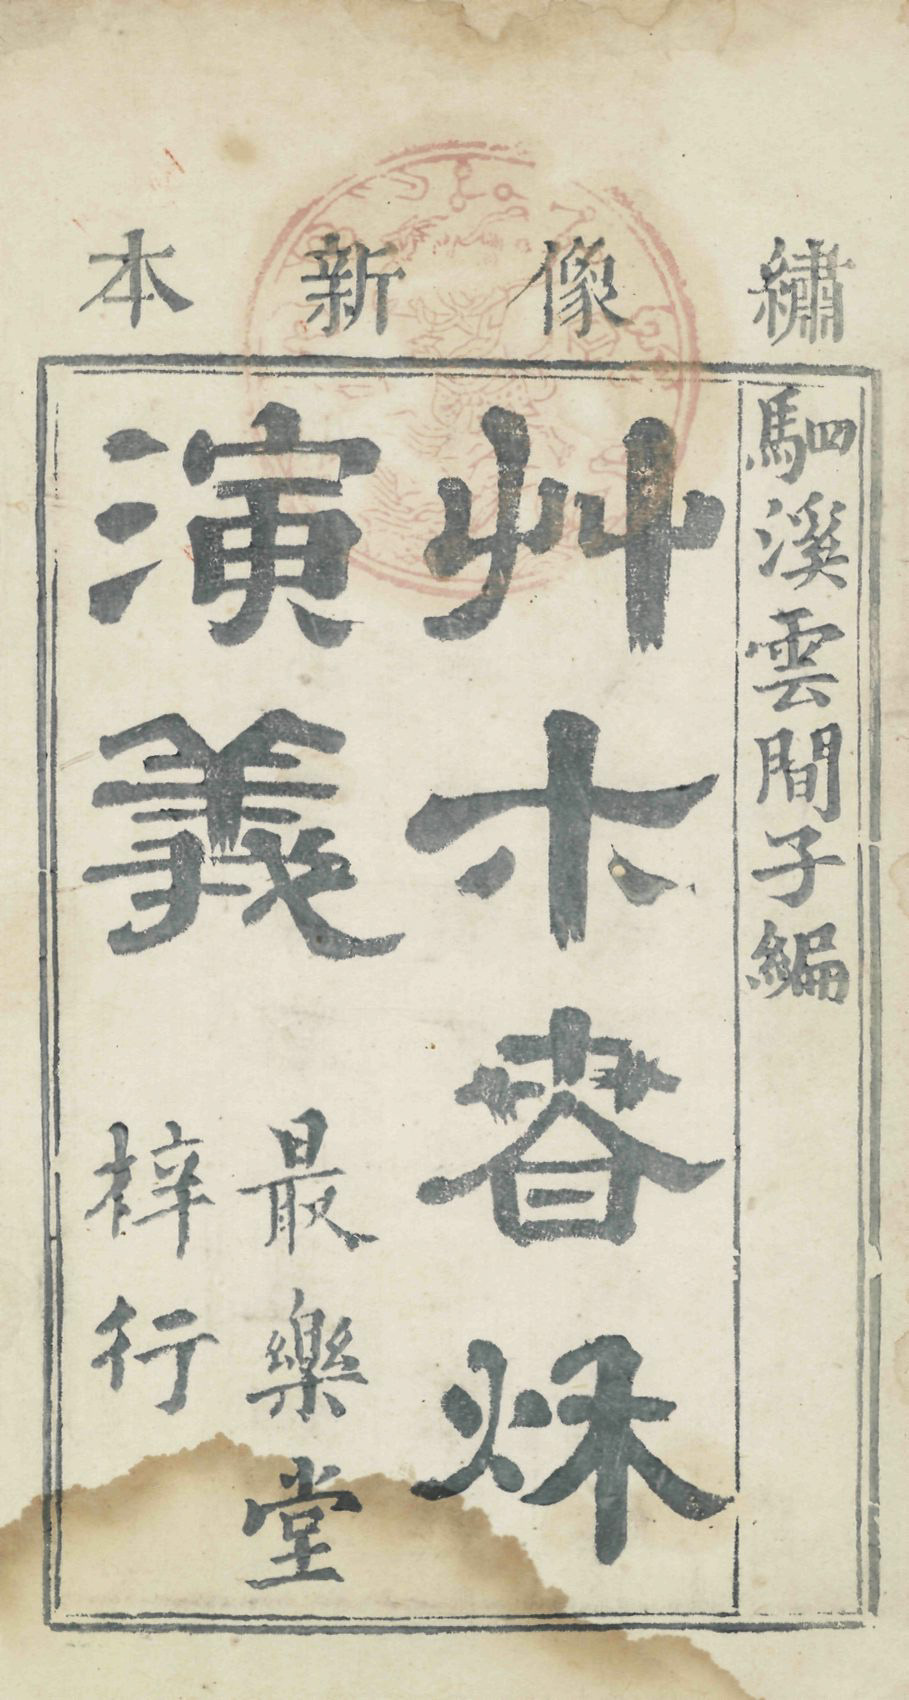 繡像新本
駟溪雲間子編
艸木春秌
演義
最樂堂
梓行